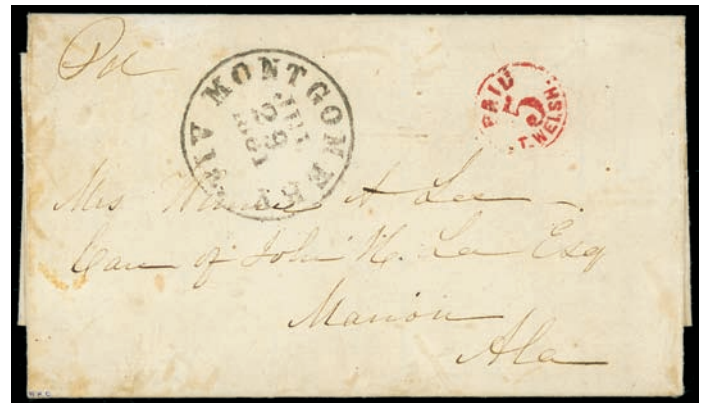 Pd
MONTGOMERY ALA
JUL
29
1861
PAID
5
T. WELSH
Mrs A Lee
Care of John H. Lee Esq
Marion
Ala